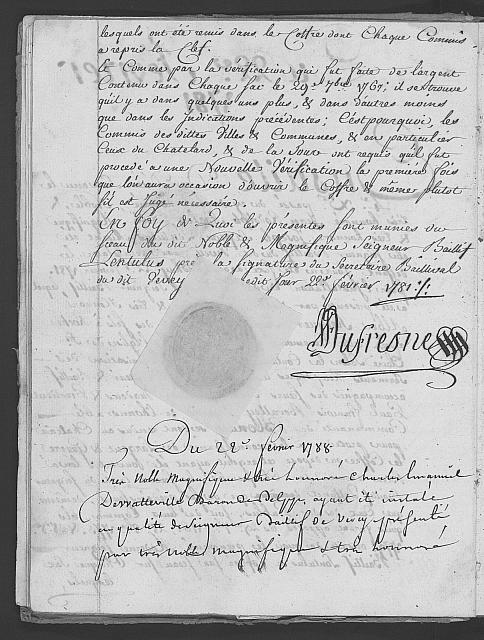 lesquels ont été remis dans le Coffre dont Chaque Commis
a repris la Clef.
Et Comme par la verification qui fut faite de l'argent
Contenu dans Chaque sac le 29e 7bre 1767; il se trouve
qu'il y a dans quelques uns plus, & dans d'autres moins
que dans les Indications précédentes; C'est pourquoi, les
Commis des dittes Villes & Communes, & en particulier
Ceux du Chatelard, & de la Tour ont requis qu'il fut
procedé a une Nouvelle Vérification la premiere fois
que l'on aura occasion d'ouvrir le Coffre & même plutot
s'il est jugé necessaire.
En foy de Quoi les présentes sont munies du
Sceau du dit Noble & Magnifique Seigneur Baillif
Lentulus près la Signature du Secretaire Baillival
du dit Vevey ledit Jour 22e février 1781 :/:
Dufresne
Du 22e fevrier 1788
Très Noble Magnifique & très honnoré Charles Emanuel
De Watteville Baron de Belpp, ayant été installé
en qualité de Seigneur Baillif de Vevey, présenté
par très noble magnifique & très honnoré